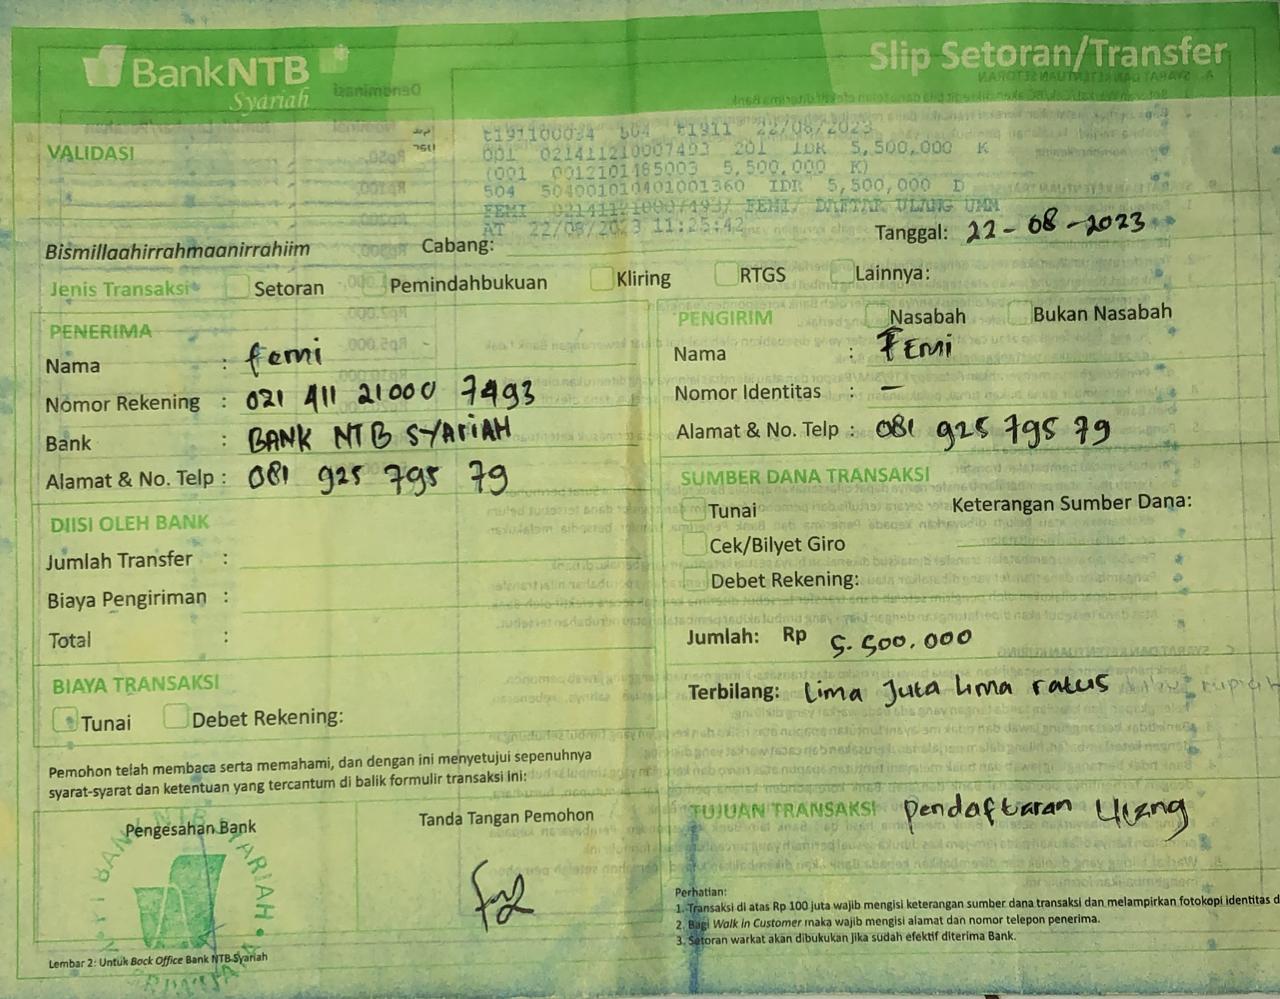 BankNTB
Syariah
Slip Setoran/Transfer
VALIDASI
t191100034 504 t1911 22/08/2023
001 021411210007493 201 IDR 5,500,000 K
(001 0012101185003 5,500,000 K)
504 504001010401001360 IDR 5,500,000 D
FEMI 021411210007493/ FEMI/ DAFTAR ULANG UMM
AT 22/08/2023 11:25:42
Bismillaahirrahmaanirrahiim
Cabang:
Tanggal: 22-08-2023
Jenis Transaksi
Setoran
Pemindahbukuan
Kliring
RTGS
Lainnya:
PENERIMA
Nama : femi
Nomor Rekening : 021 411 21000 7493
Bank : BANK NTB SYARIAH
Alamat & No. Telp : 081 925 795 79
DIISI OLEH BANK
Jumlah Transfer :
Biaya Pengiriman :
Total :
BIAYA TRANSAKSI
Tunai
Debet Rekening:
Pemohon telah membaca serta memahami, dan dengan ini menyetujui sepenuhnya
syarat-syarat dan ketentuan yang tercantum di balik formulir transaksi ini:
Pengesahan Bank
Tanda Tangan Pemohon
Lembar 2: Untuk Back Office Bank NTB Syariah
PENGIRIM
Nasabah
Bukan Nasabah
Nama : FEMI
Nomor Identitas : -
Alamat & No. Telp : 081 925 795 79
SUMBER DANA TRANSAKSI
Tunai
Keterangan Sumber Dana:
Cek/Bilyet Giro
Debet Rekening:
Jumlah: Rp 5.500.000
Terbilang: Lima Juta Lima ratus ribu rupiah
TUJUAN TRANSAKSI Pendaftaran Ulang
Perhatian:
1. Transaksi di atas Rp 100 juta wajib mengisi keterangan sumber dana transaksi dan melampirkan fotokopi identitas d
2. Bagi Walk in Customer maka wajib mengisi alamat dan nomor telepon penerima.
3. Setoran warkat akan dibukukan jika sudah efektif diterima Bank.